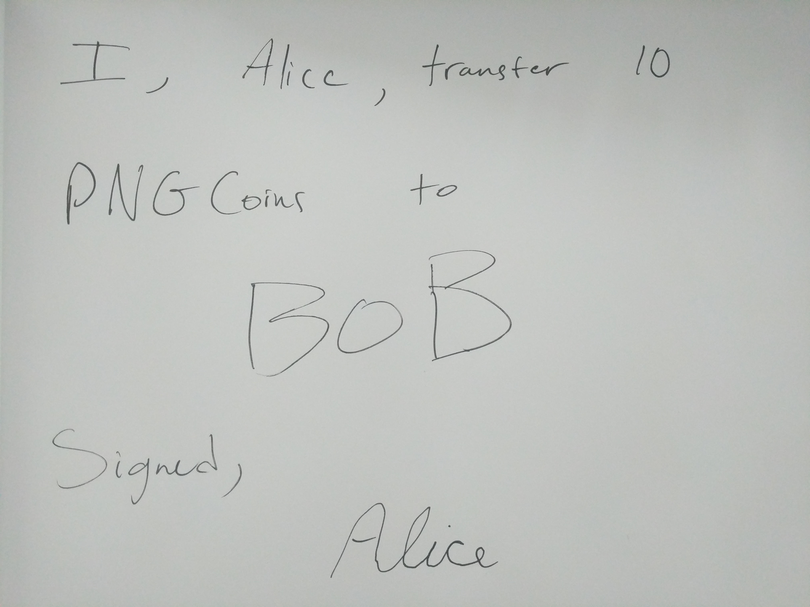 I, Alice, transfer 10
PNGCoins to
BOB
Signed,
Alice